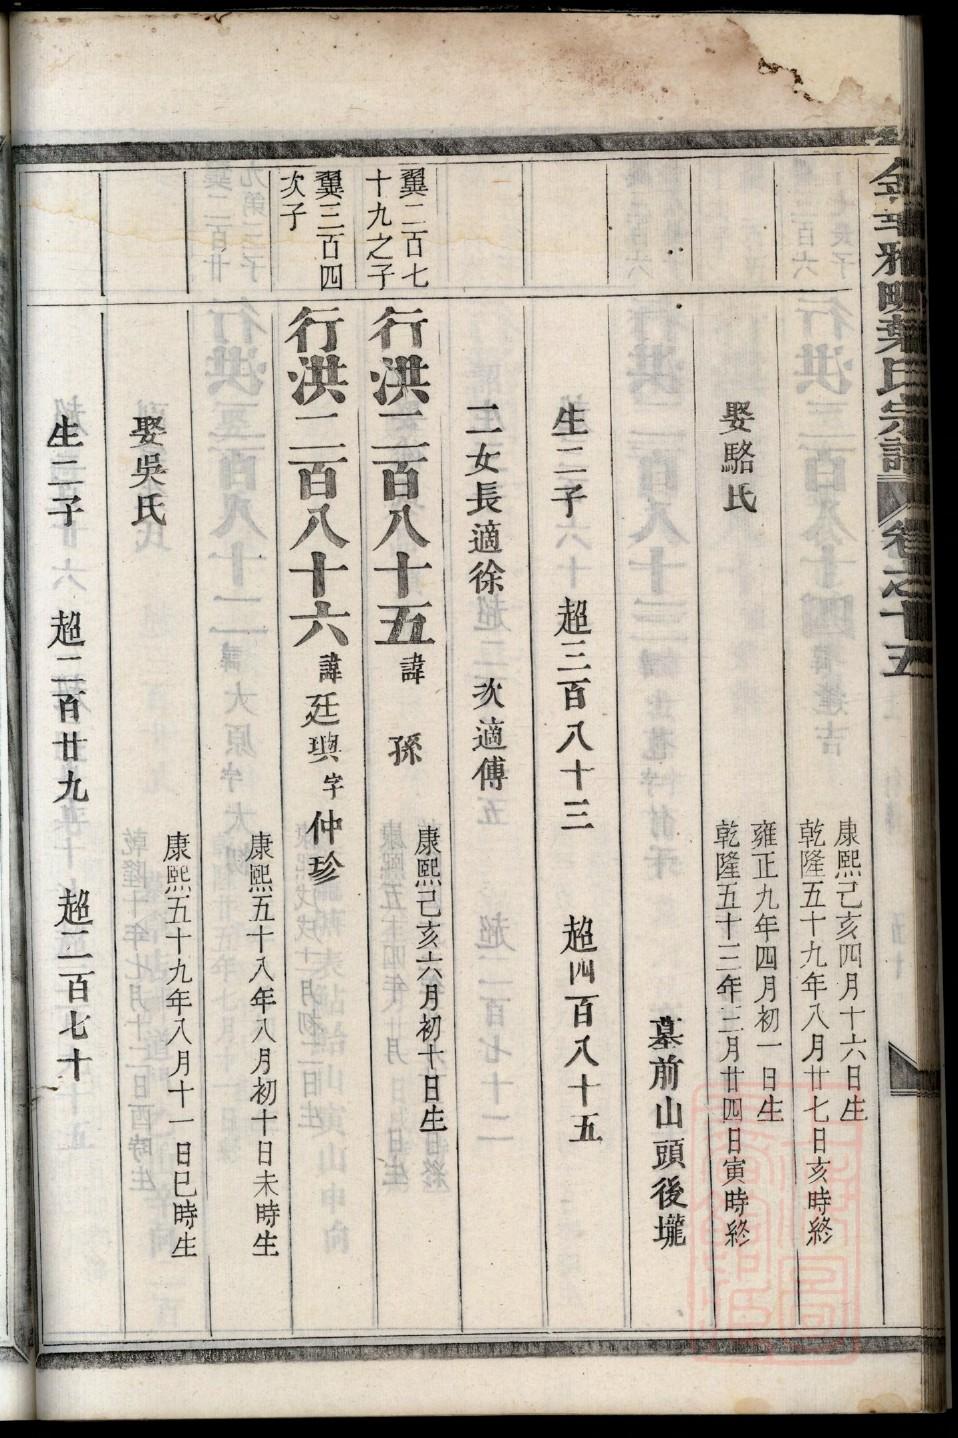 葉氏宗譜 卷之十五
康熙己亥四月十六日生
乾隆五十九年八月廿七日亥時終
娶駱氏
雍正九年四月初一日生
乾隆五十三年三月廿四日寅時終
墓前山頭後壠
生二子 超三百八十三 超四百八十五
二女長適徐 次適傅
翼二百七十九之子
行洪二百八十五 諱 孫
康熙己亥六月初十日生
翼三百四次子
行洪二百八十六 諱廷璵字仲珍
康熙五十八年八月初十日未時生
娶吳氏
康熙五十九年八月十一日巳時生
生二子 超二百廿九 超二百七十